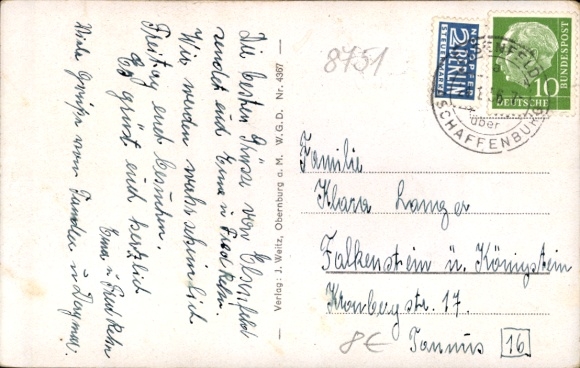 Die besten Grüße von Elsenfeld
sendet euch Erna u. Fredkehn
Wir werden wahrscheinlich
Freitag euch besuchen.
Es grüßt euch herzlich
Erna u.
Viele Grüße von Tanten u Dagmar.
Verlag: J. Weitz, Obernburg a. M. W.G.D. Nr. 4367
8751
NOTOPFER
2 BERLIN
STEUERMARKE
10
DEUTSCHE
BUNDESPOST
über
ASCHAFFENBURG
Familie
Klara Langer
Falkenstein ü. Königstein
Kronbergstr. 17.
Taunus 16
8€